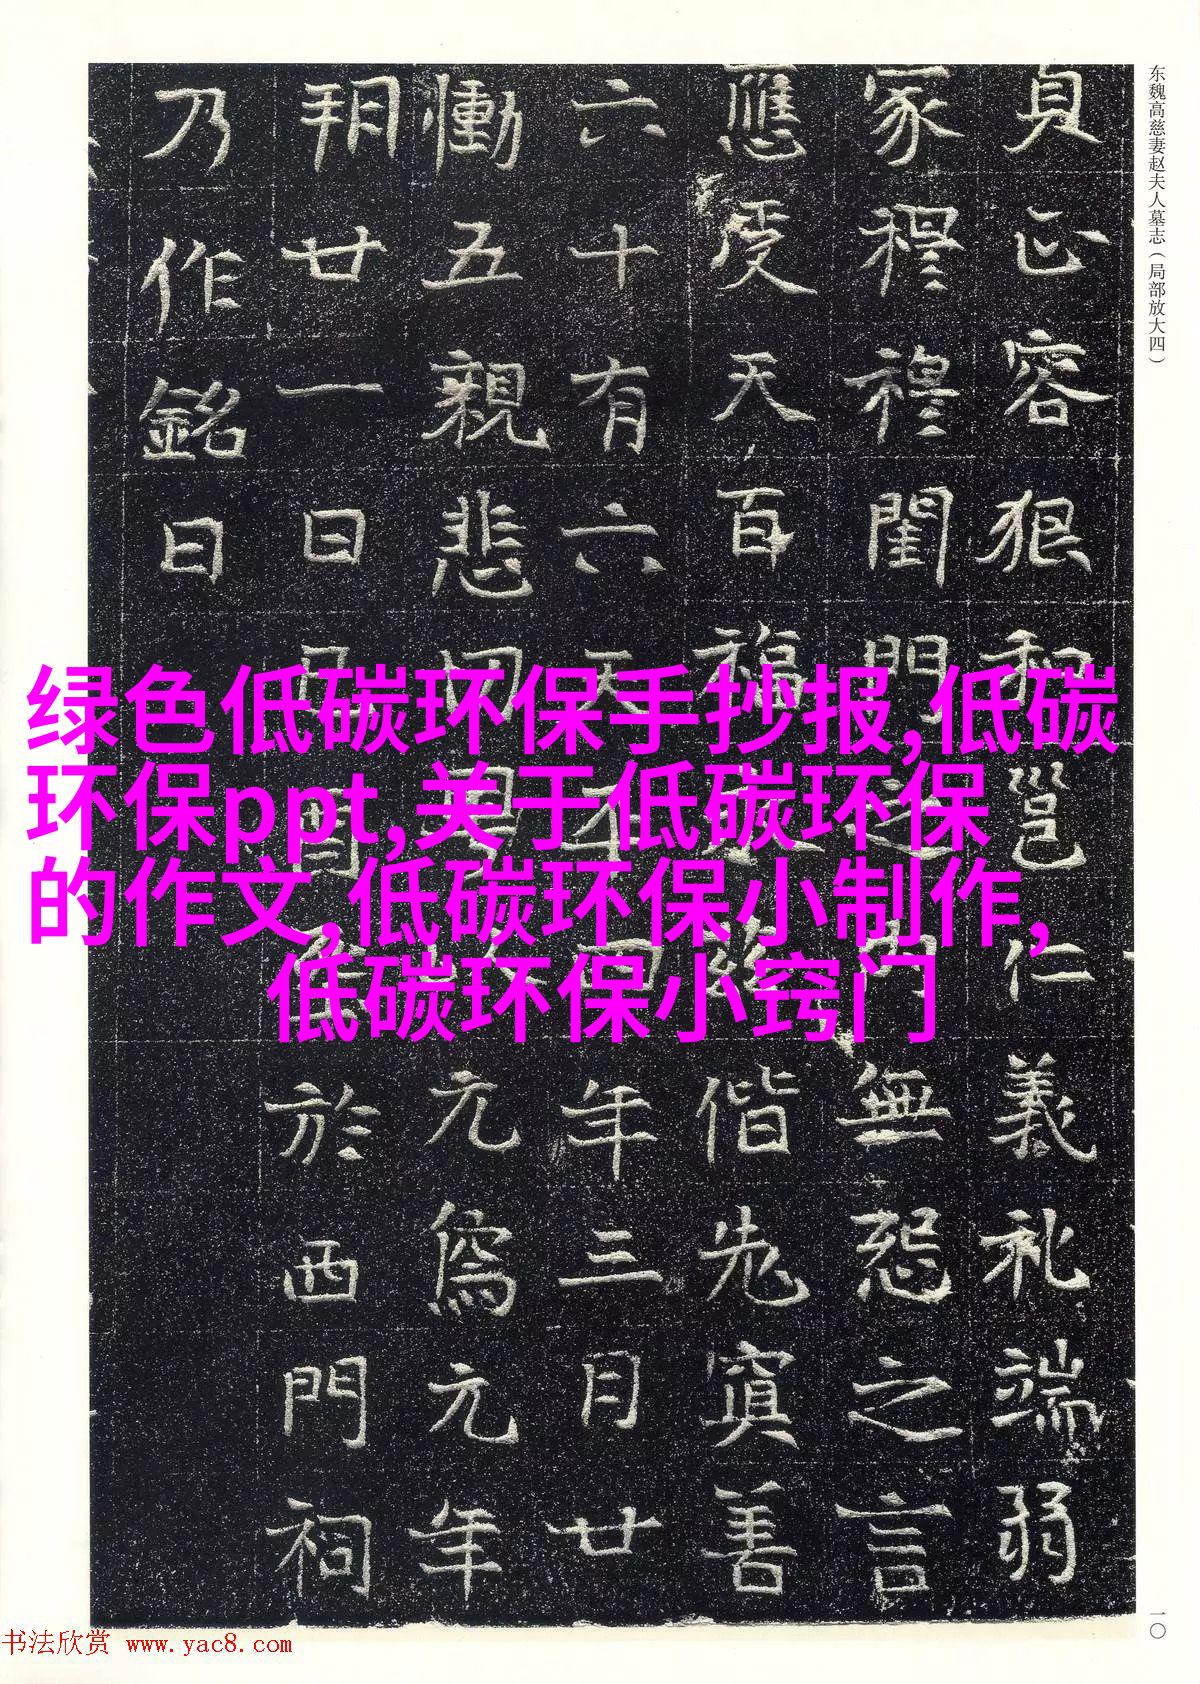 东魏高慈妻赵夫人墓志（局部放大四）
貞正容狠和邕仁義礼端弱
家穆穆閨門之内無怨之言
應受天百福偕老寘善
六十有六天年三月廿
慟五親悲切元為元年
朔廿一日於西門祠
乃作銘曰
绿色低碳环保手抄报,低碳
环保ppt,关于低碳环保
的作文,低碳环保小制作,
低碳环保小窍门
一〇
书法欣赏 www.yac8.com